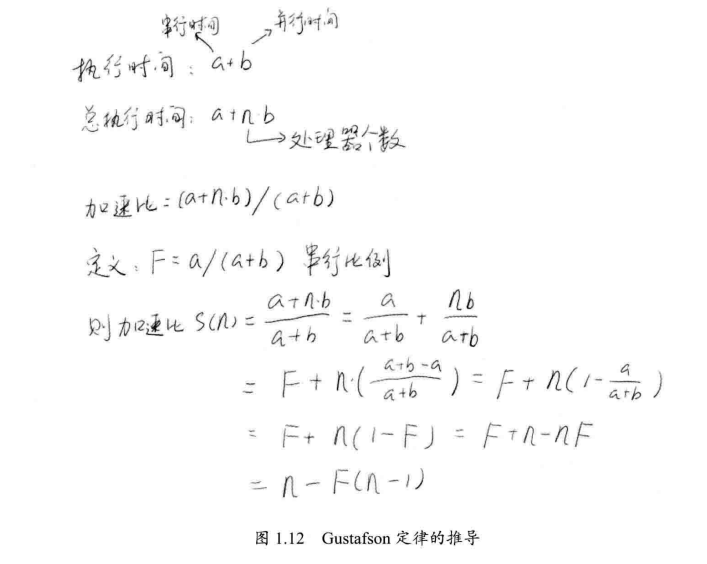 串行时间 并行时间
执行时间：a+b
总执行时间：a+n·b
处理器个数
加速比=(a+n·b)/(a+b)
定义：F=a/(a+b) 串行比例
则加速比 S(n) = \frac{a+n·b}{a+b} = \frac{a}{a+b} + \frac{nb}{a+b}
= F+n·(\frac{a+b-a}{a+b}) = F+n(1-\frac{a}{a+b})
= F+n(1-F) = F+n-nF
= n-F(n-1)
图 1.12 Gustafson 定律的推导